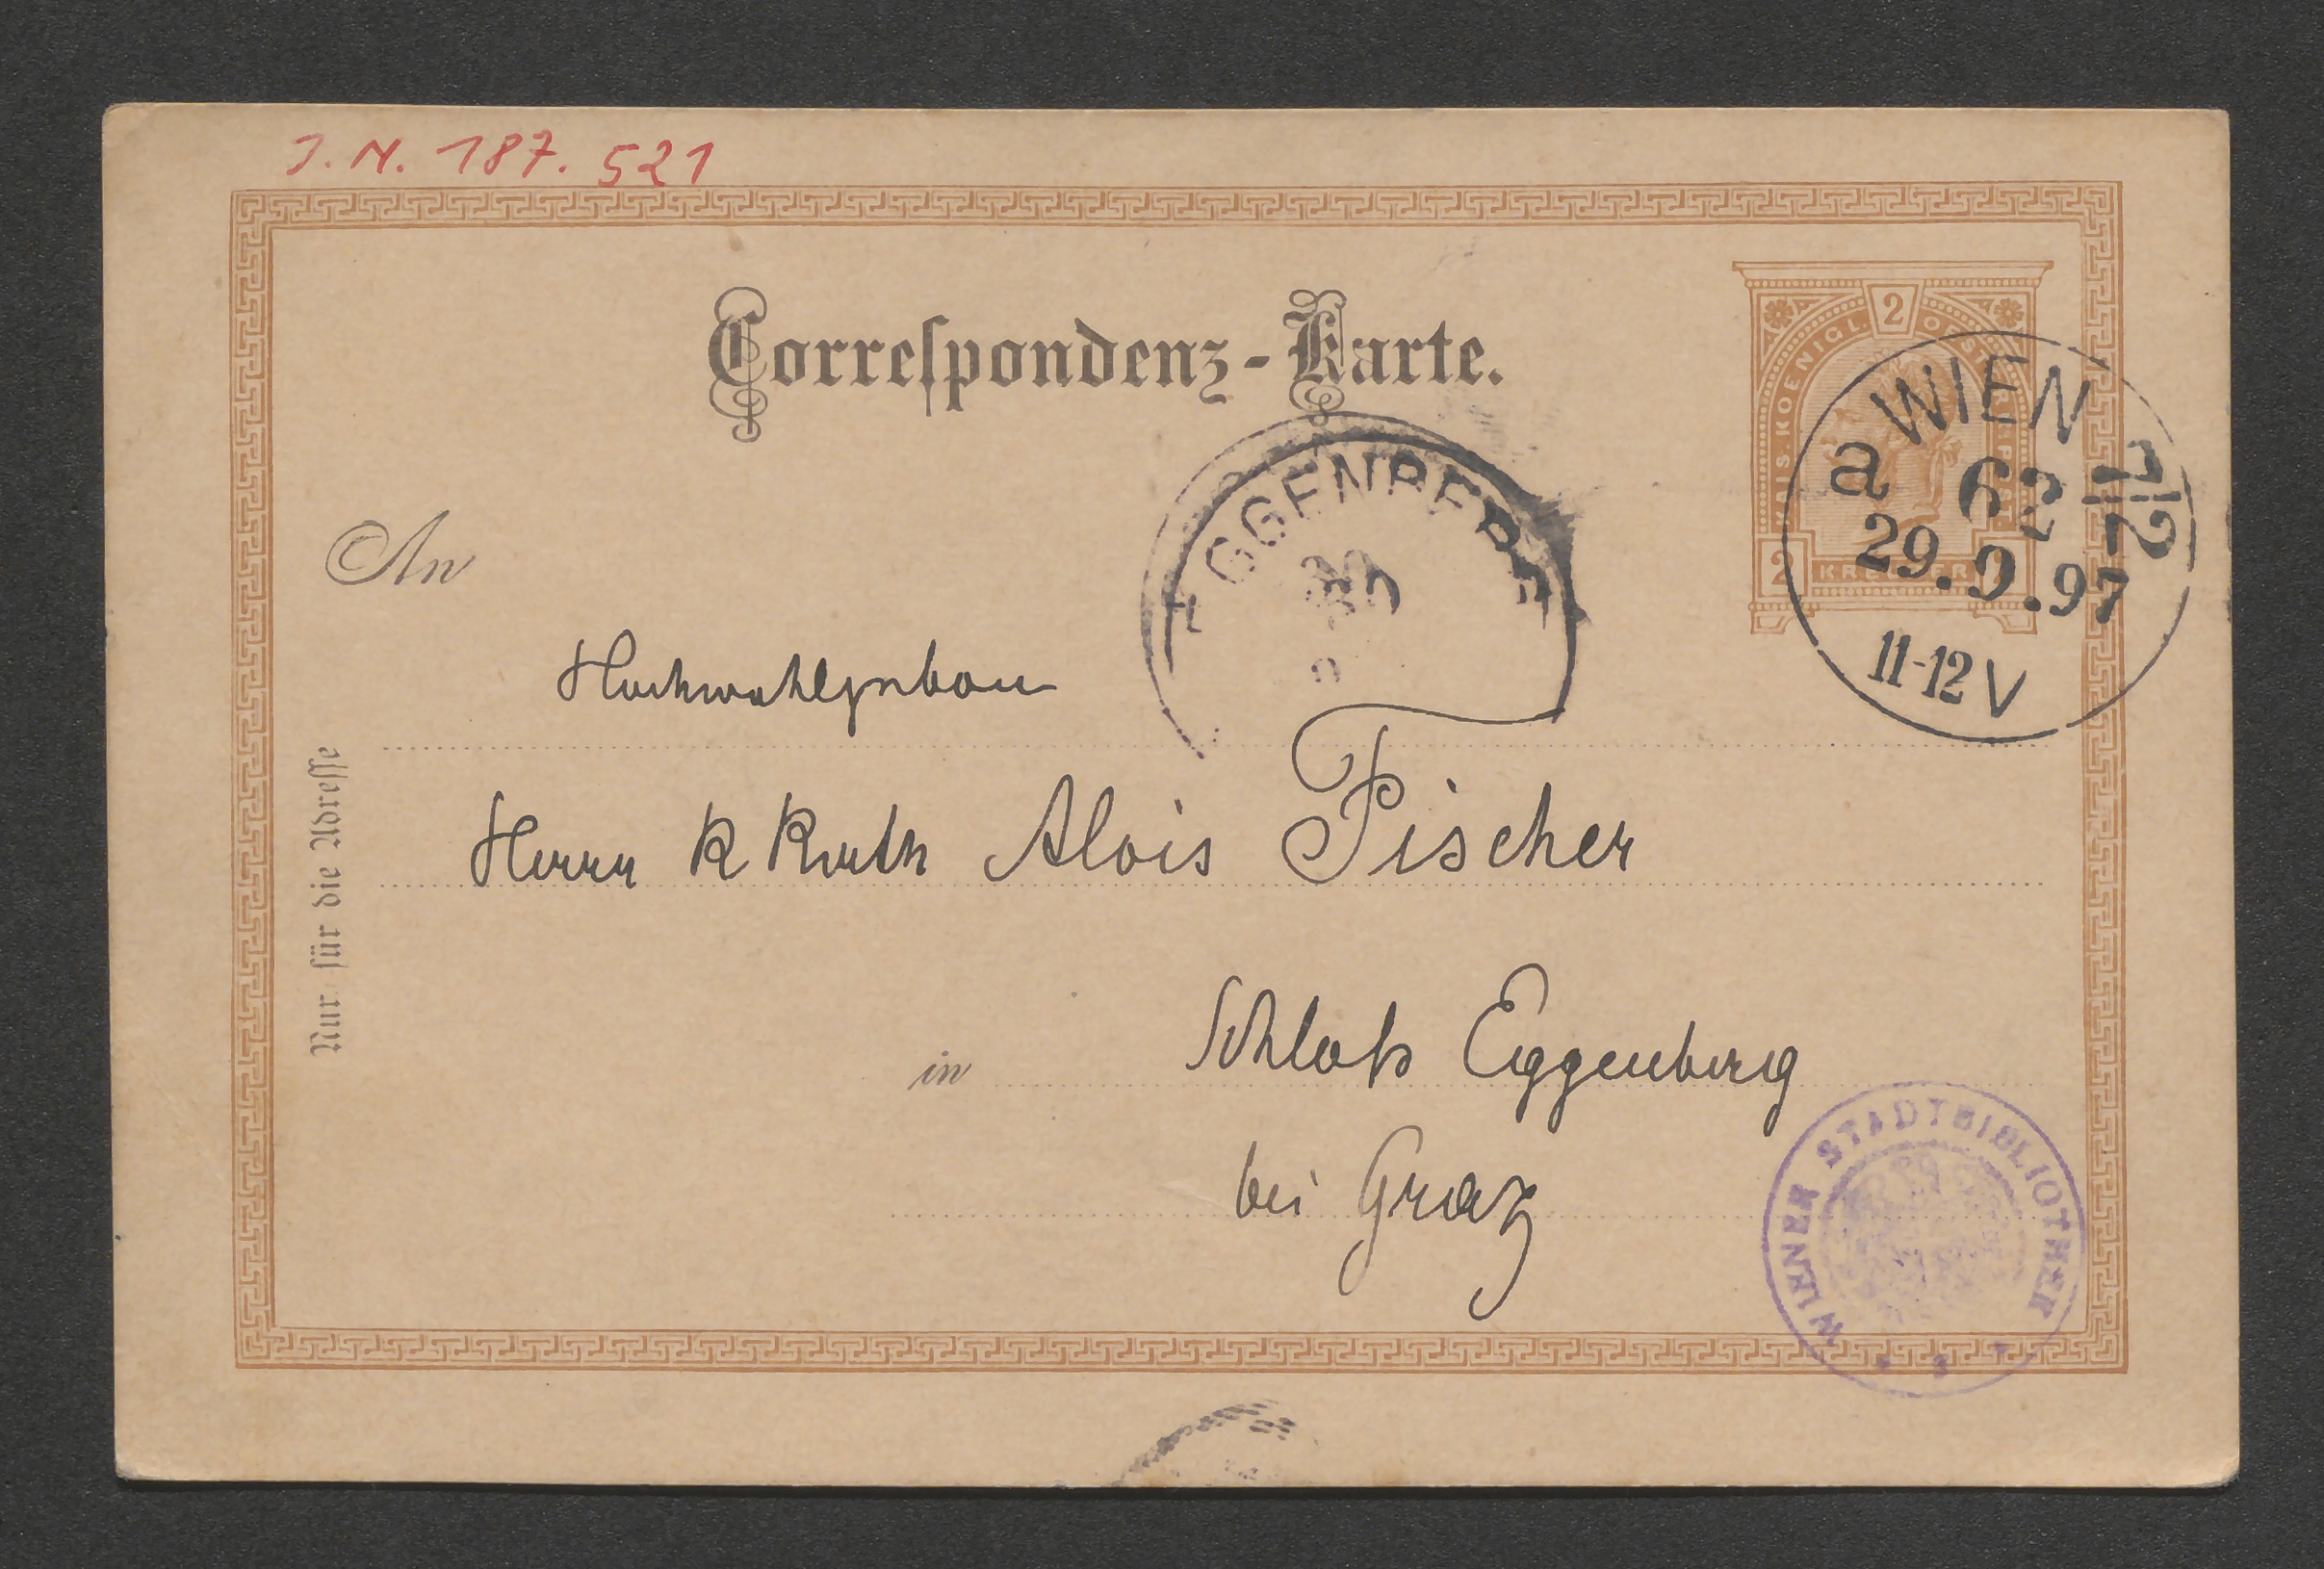 J. N. 187. 521
Correspondenz-Karte.
2
KAIS. KOENIGL. OESTERR. POST
2 KREUZER
WIEN 7/2
a 62
29. 9. 97
11-12 V
EGGENBERG
30
An
Hochwohlgeboren
Herrn R Rath Alois Fischer
in Schloß Eggenberg
bei Graz
Nur für die Adresse
WIENER STADTBIBLIOTHEK